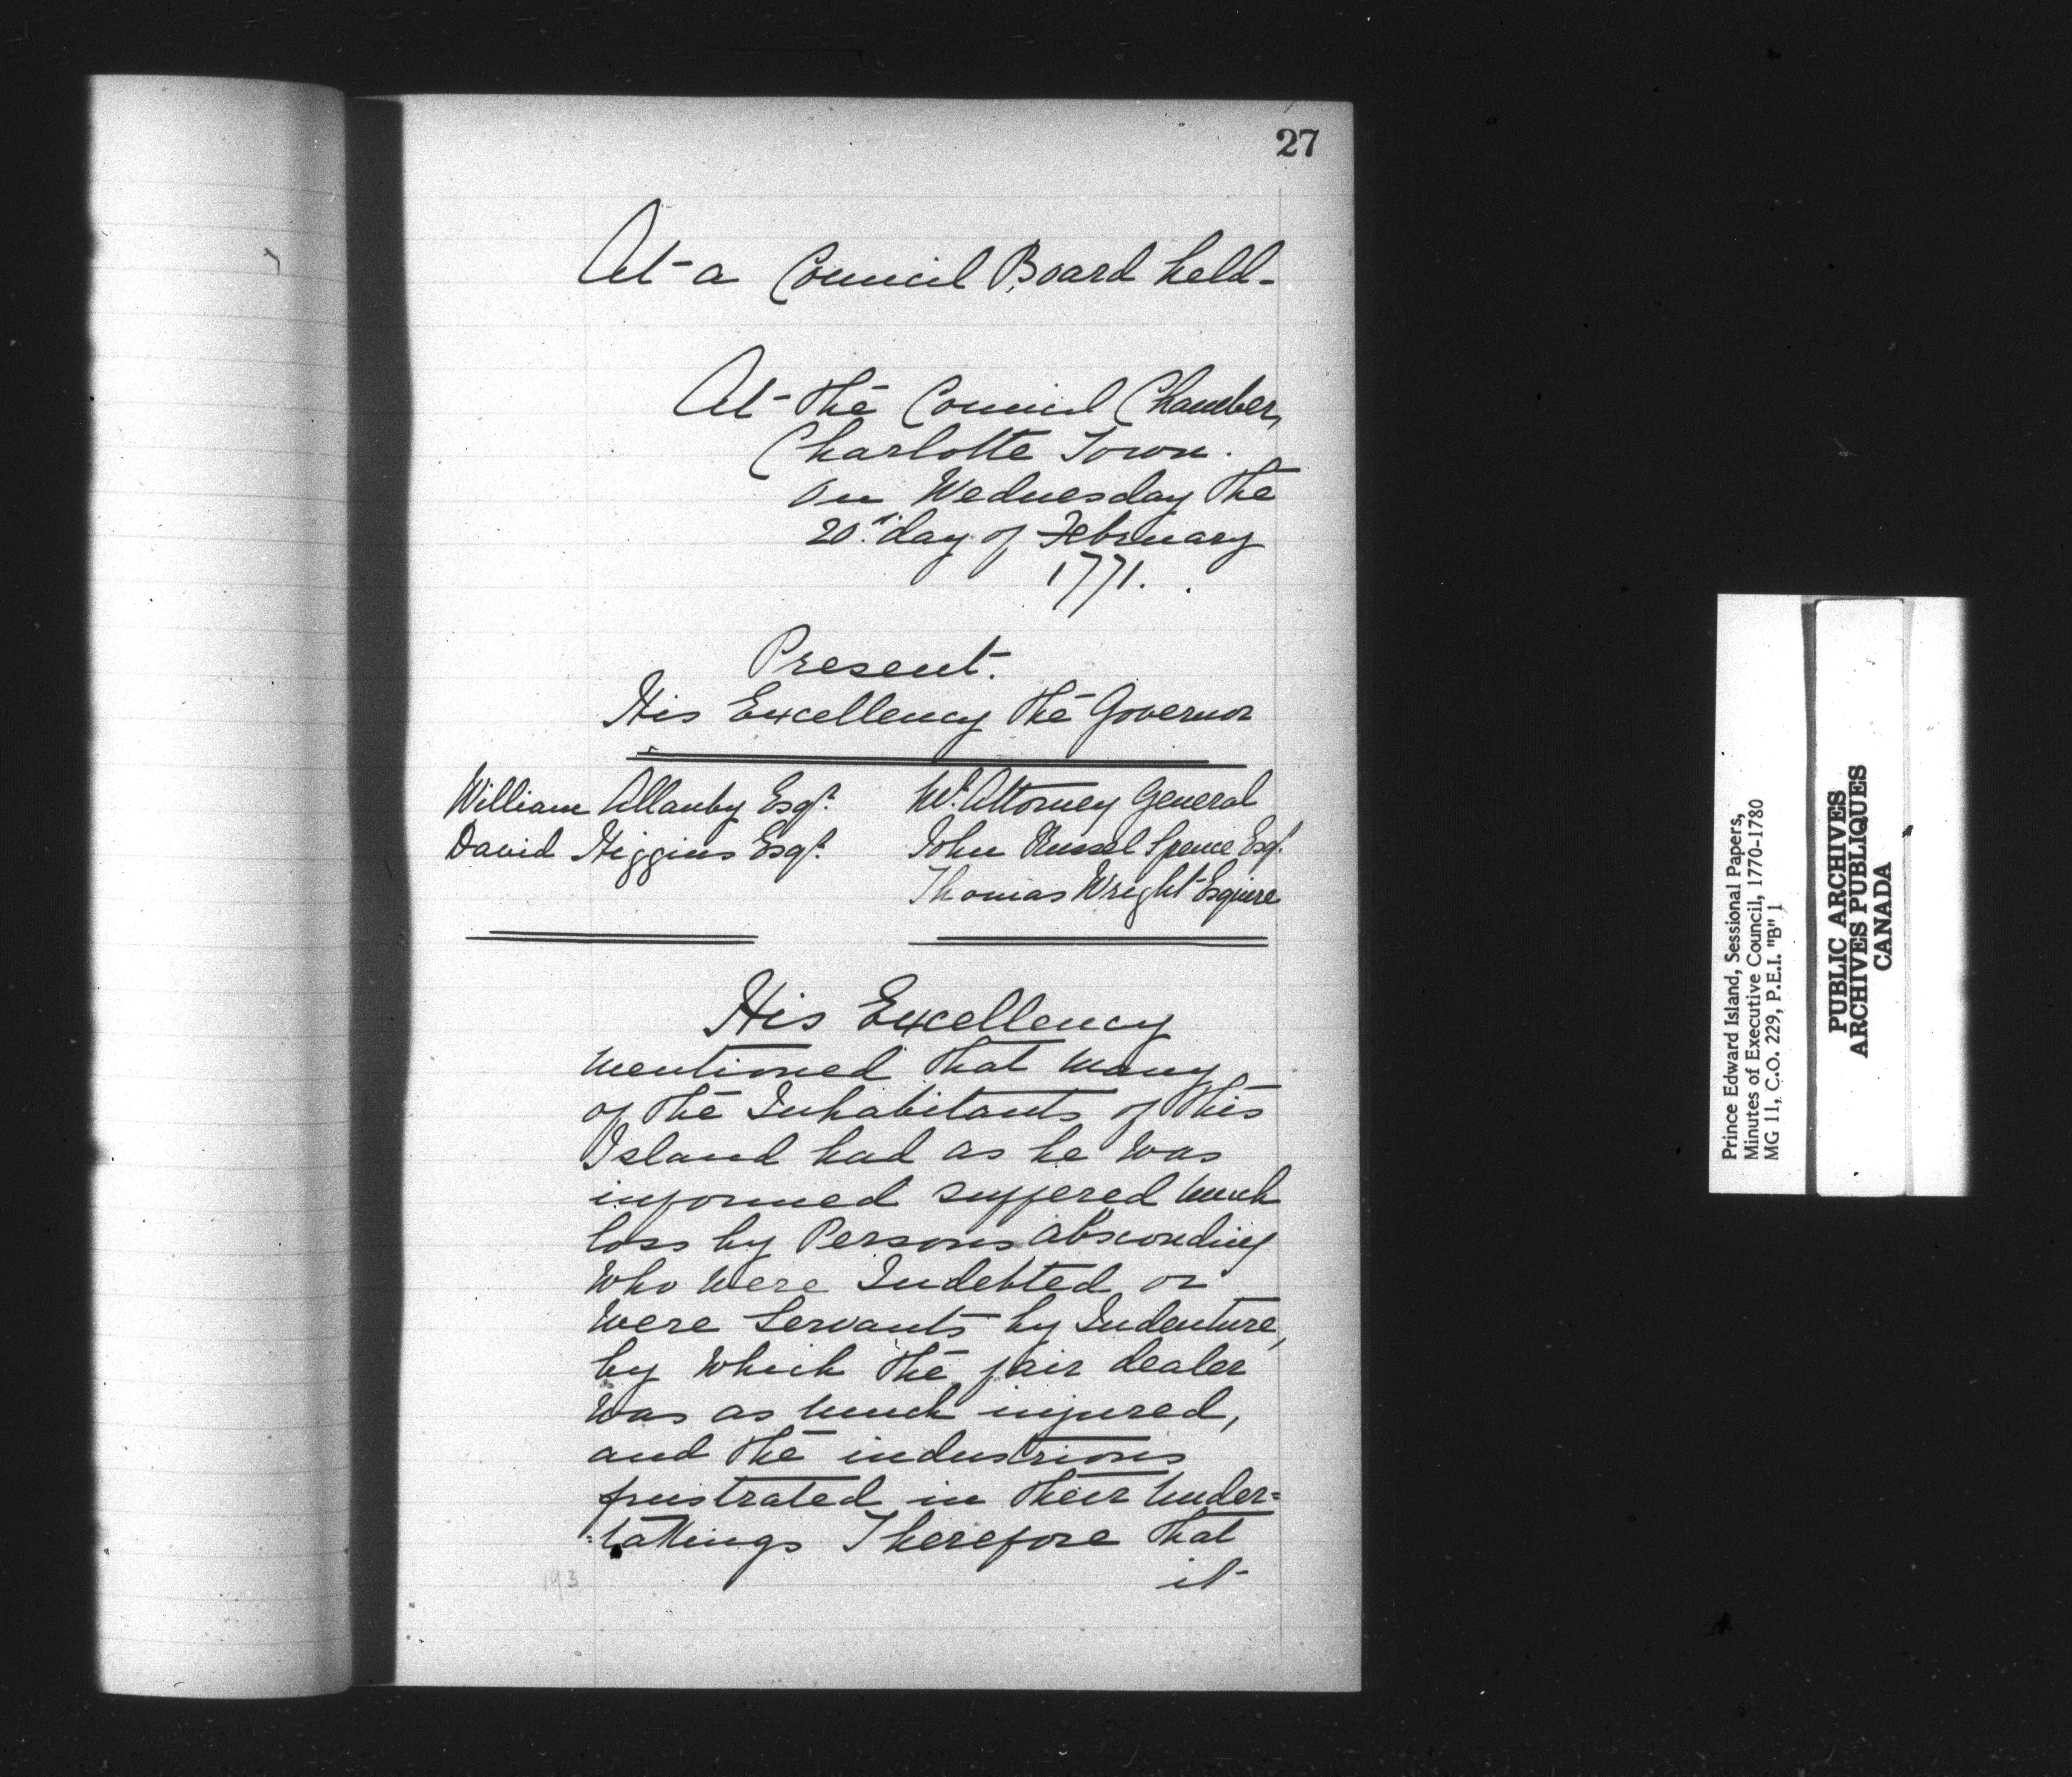 27
At a Council Board held
At the Council Chamber,
Charlotte Town.
on Wednesday the
20th day of February
1771.
Present.
His Excellency the Governor
William Allanby Esqr.
David Higgins Esqr.
Mr. Attorney General
John Russel Spence Esqr.
Thomas Wright Esquire
His Excellency
mentioned that many
of the Inhabitants of this
Island had as he was
informed suffered much
loss by Persons absconding
who were Indebted or
were Servants by Indenture,
by which the fair dealer
was as much injured,
and the industrious
frustrated in their under=
=takings Therefore that
it
193
Prince Edward Island, Sessional Papers,
Minutes of Executive Council, 1770-1780
MG 11, C.O. 229, P.E.I. "B" 1
PUBLIC ARCHIVES
ARCHIVES PUBLIQUES
CANADA